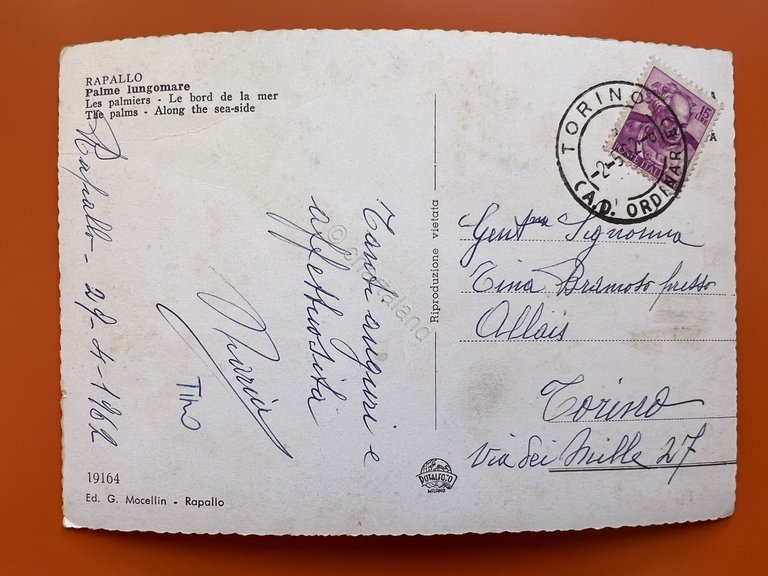 RAPALLO
Palme lungomare
Les palmiers - Le bord de la mer
The palms - Along the sea-side
Rapallo - 29-4-1962
Tanti auguri e
affettuosità
Maria
Tino
19164
Ed. G. Mocellin - Rapallo
Riproduzione vietata
ROTALFOTO
MILANO
TORINO
(A.D. ORDINARIE)
15
LIRE
POSTE ITALIANE
Gent.ma Signorina
Tina Bramoto presso
Allais
Torino
Via dei Mille 27